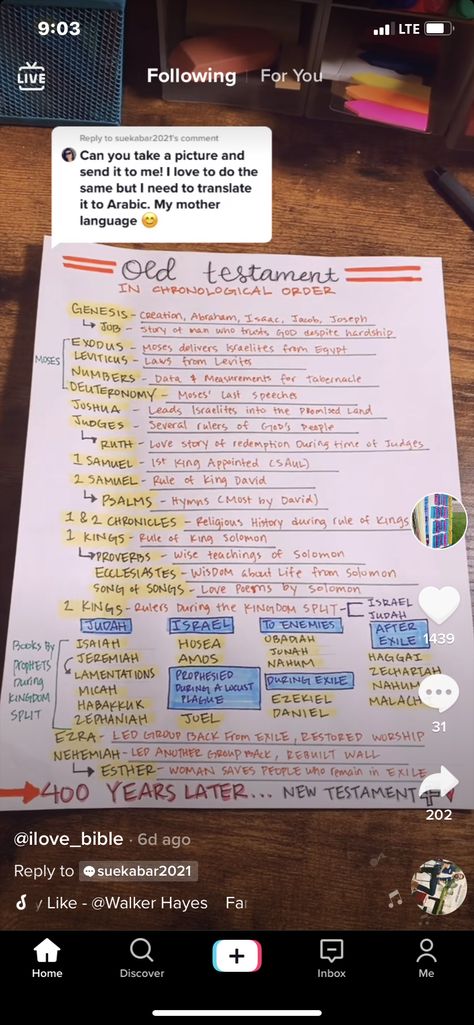 9:03
LTE
LIVE
Following
For You
Reply to suekabar2021's comment
Can you take a picture and
send it to me! I love to do the
same but I need to translate
it to Arabic. My mother
language 😊
Old testament
IN CHRONOLOGICAL ORDER
GENESIS - Creation, Abraham, Isaac, Jacob, Joseph
↳ JOB - Story of man who trusts GOD despite hardship
MOSES
EXODUS - Moses delivers Israelites from Egypt
LEVITICUS - Laws from Levites
NUMBERS - Data & Measurements for tabernacle
DEUTERONOMY - Moses' Last Speeches
JOSHUA - Leads Israelites into the Promised Land
JUDGES - Several rulers of God's People
↳ RUTH - Love story of redemption During time of Judges
1 SAMUEL - 1st King Appointed (SAUL)
2 SAMUEL - Rule of King David
↳ PSALMS - Hymns (Most by David)
1 & 2 CHRONICLES - Religious History during rule of Kings
1 KINGS - Rule of King Solomon
↳ PROVERBS - Wise teachings of Solomon
ECCLESIASTES - Wisdom about Life from Solomon
SONG OF SONGS - Love Poems by Solomon
2 KINGS - Rulers During the KINGDOM SPLIT -
ISRAEL
JUDAH
Books By
Prophets
During
KINGDOM
SPLIT
JUDAH
ISAIAH
JEREMIAH
LAMENTATIONS
MICAH
HABAKKUK
ZEPHANIAH
ISRAEL
HOSEA
AMOS
PROPHESIED
DURING A LOCUST
PLAGUE
JOEL
TO ENEMIES
OBADIAH
JONAH
NAHUM
DURING EXILE
EZEKIEL
DANIEL
AFTER
EXILE
HAGGAI
ZECHARIAH
NAHUM
MALACH
EZRA - LED GROUP BACK FROM EXILE, RESTORED WORSHIP
NEHEMIAH - LED ANOTHER GROUP BACK, REBUILT WALL
↳ ESTHER - WOMAN SAVES PEOPLE who remain in EXILE
→ 400 YEARS LATER... NEW TESTAMENT
1439
31
202
@ilove_bible · 6d ago
Reply to suekabar2021
y Like - @Walker Hayes Fa
Home
Discover
Inbox
Me